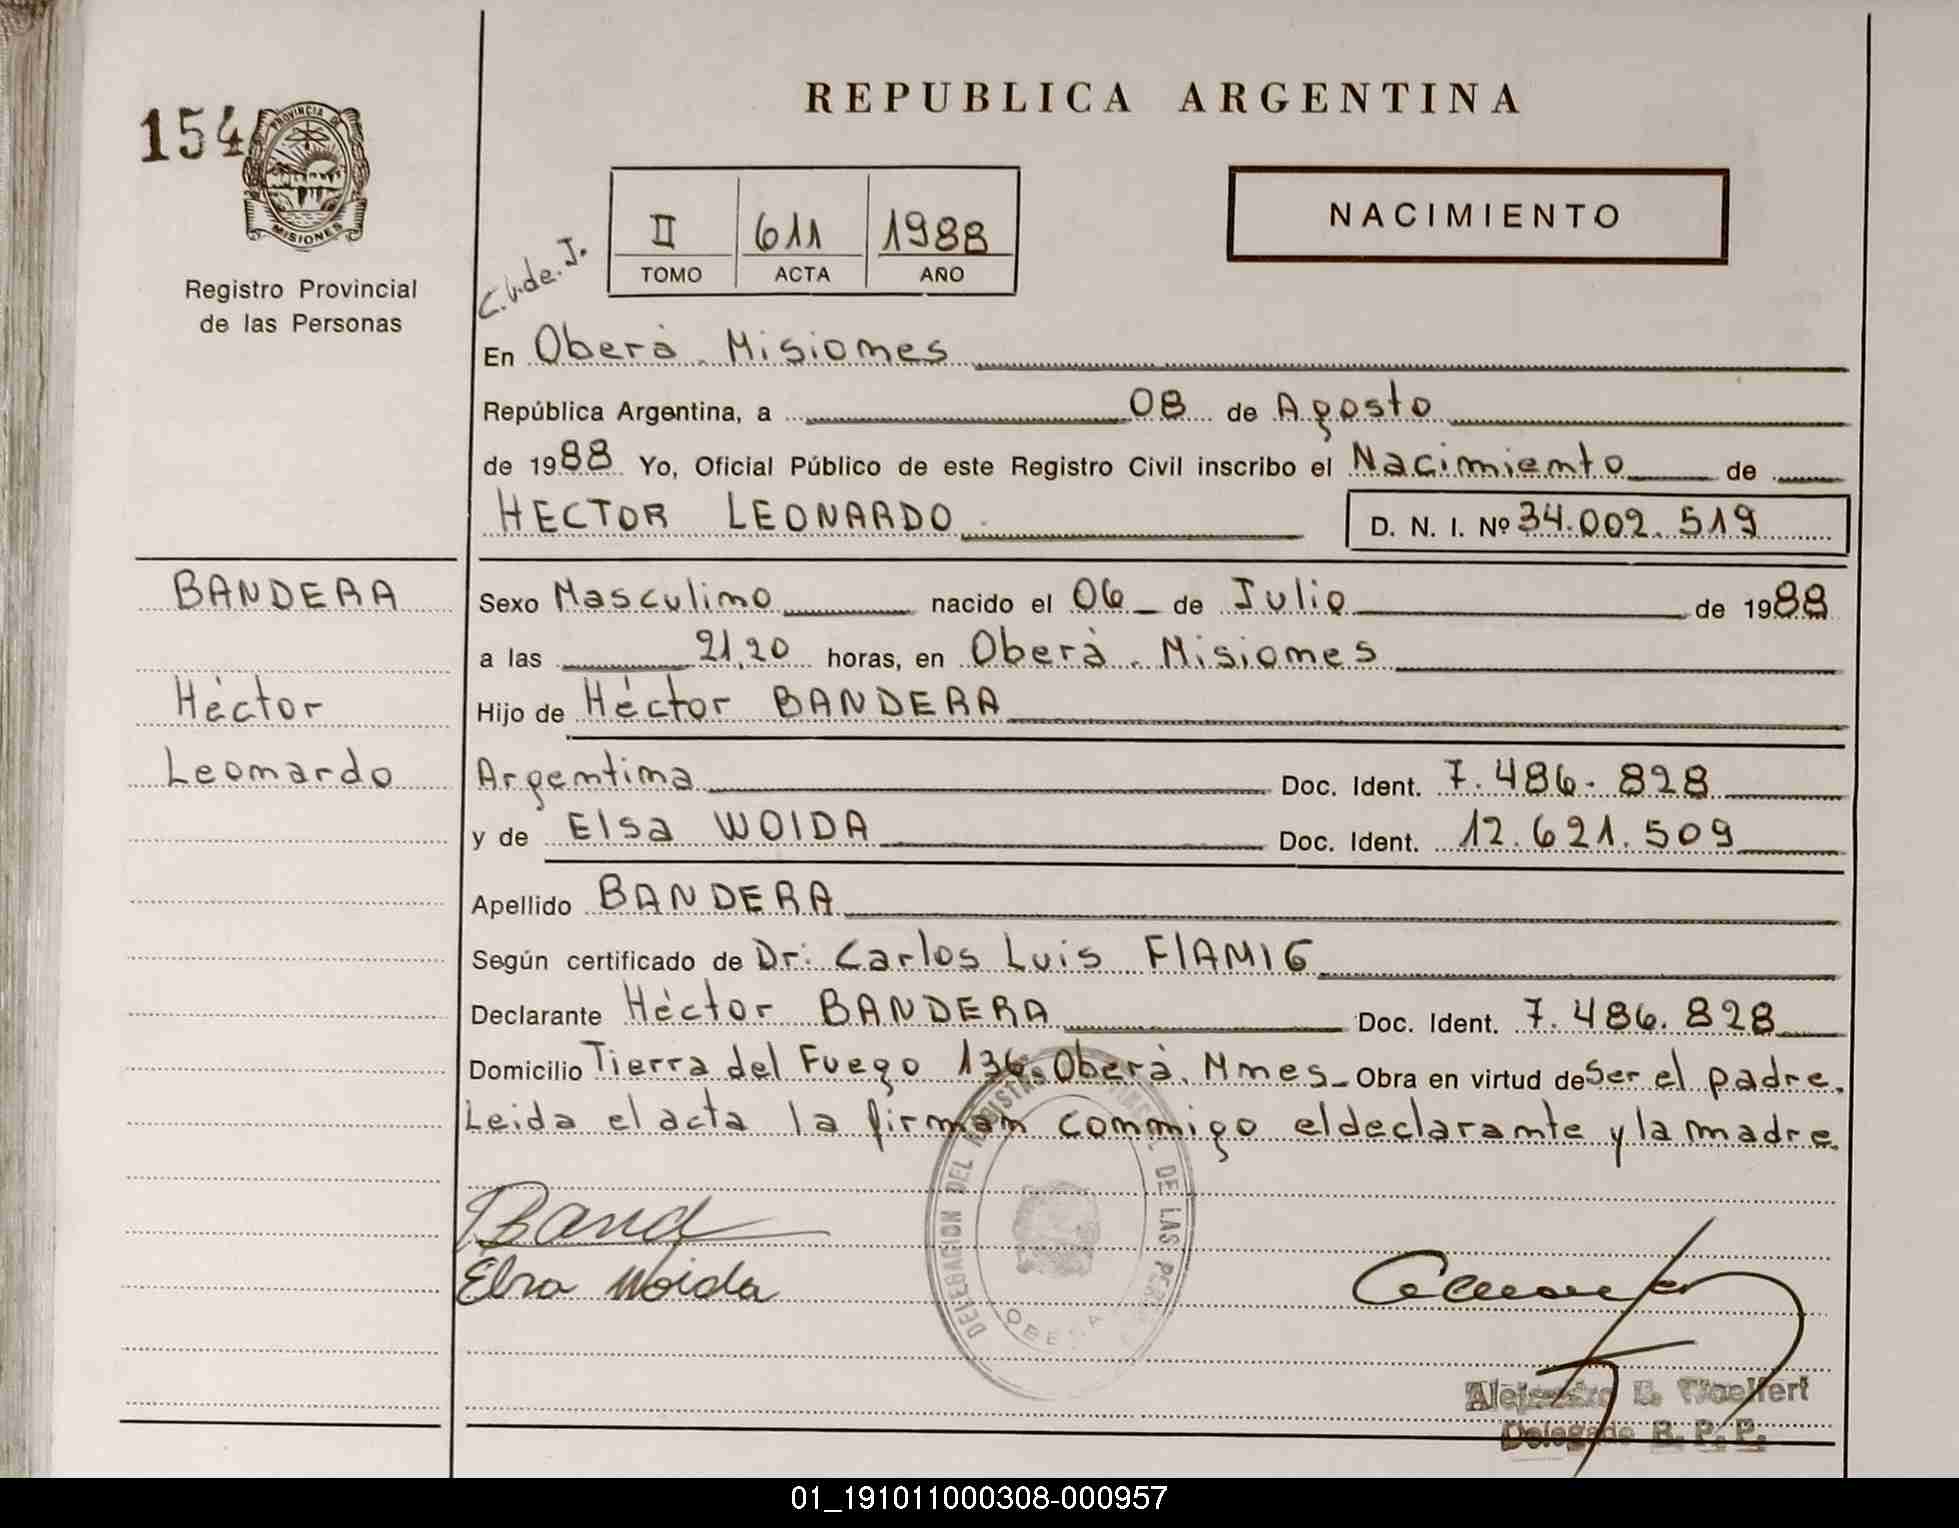 REPUBLICA ARGENTINA
154
PROVINCIA DE
MISIONES
Registro Provincial
de las Personas
II 611 1988
TOMO ACTA AÑO
NACIMIENTO
En Oberá. Misiones
República Argentina, a 08 de Agosto
de 1988 Yo, Oficial Público de este Registro Civil inscribo el Nacimiento de
HECTOR LEONARDO D. N. I. Nº 34.002.519
BANDERA
Héctor
Leonardo
Sexo Masculino nacido el 06 de Julio de 1988
a las 21,20 horas, en Oberá. Misiones
Hijo de Héctor BANDERA
Argentina Doc. Ident. 7.486.828
y de Elsa WOIDA Doc. Ident. 12.621.509
Apellido BANDERA
Según certificado de Dr: Carlos Luis FIAMIG
Declarante Héctor BANDERA Doc. Ident. 7.486.828
Domicilio Tierra del Fuego 136. Oberá. Mnes. Obra en virtud de Ser el padre.
Leida el acta la firman conmigo el declarante y la madre.
Band
Elsa Woida
DELEGACION DEL REGISTRO PROVINCIAL DE LAS PERS
OBERA
Alejandro E. Woelfert
Delegado R. P. P.
01_191011000308-000957